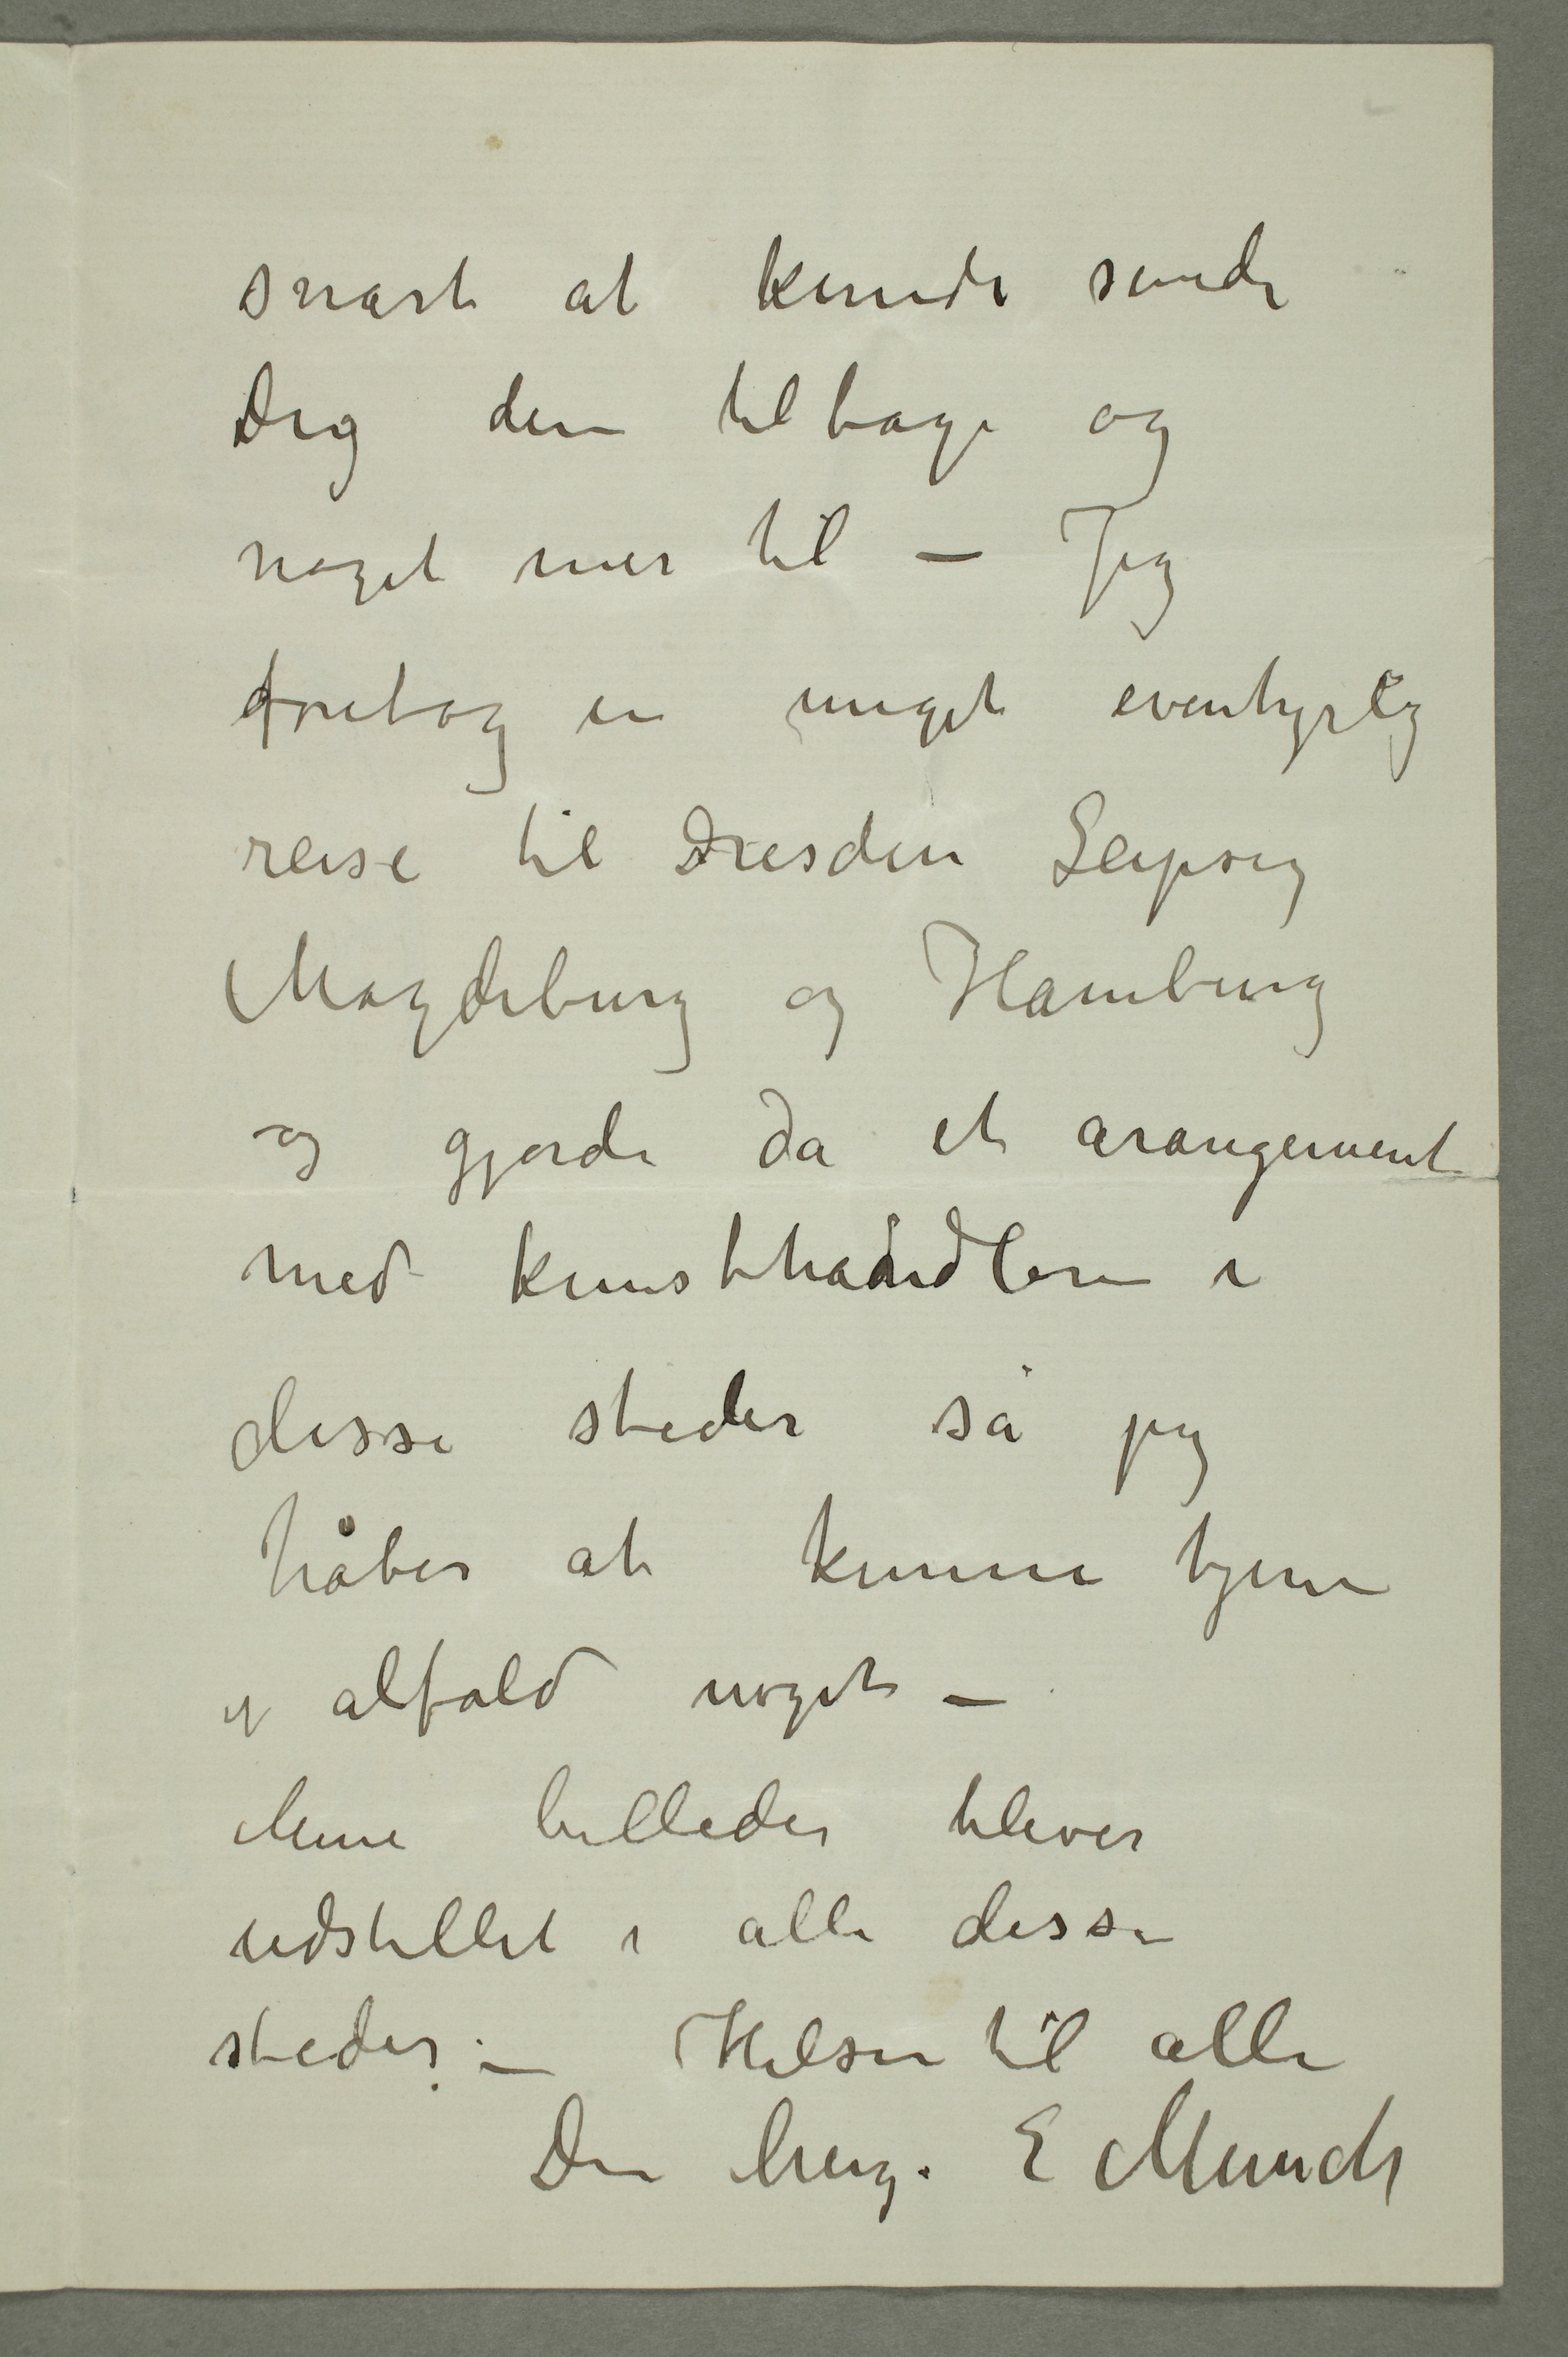 snart at kunde sende
Dig dem tilbage og
noget mer til – Jeg
foretog en meget eventyrlig
reise til Dresden Leipsig
Magdeburg og Hamburg
og gjorde da et arangement
med kunsthandlere i
disse steder så jeg
håber at kunne tjene
alfald noget –
Mine billeder blever
udstillet i alle disse
steder. – Hilsen til alle
Din heng. E Munch